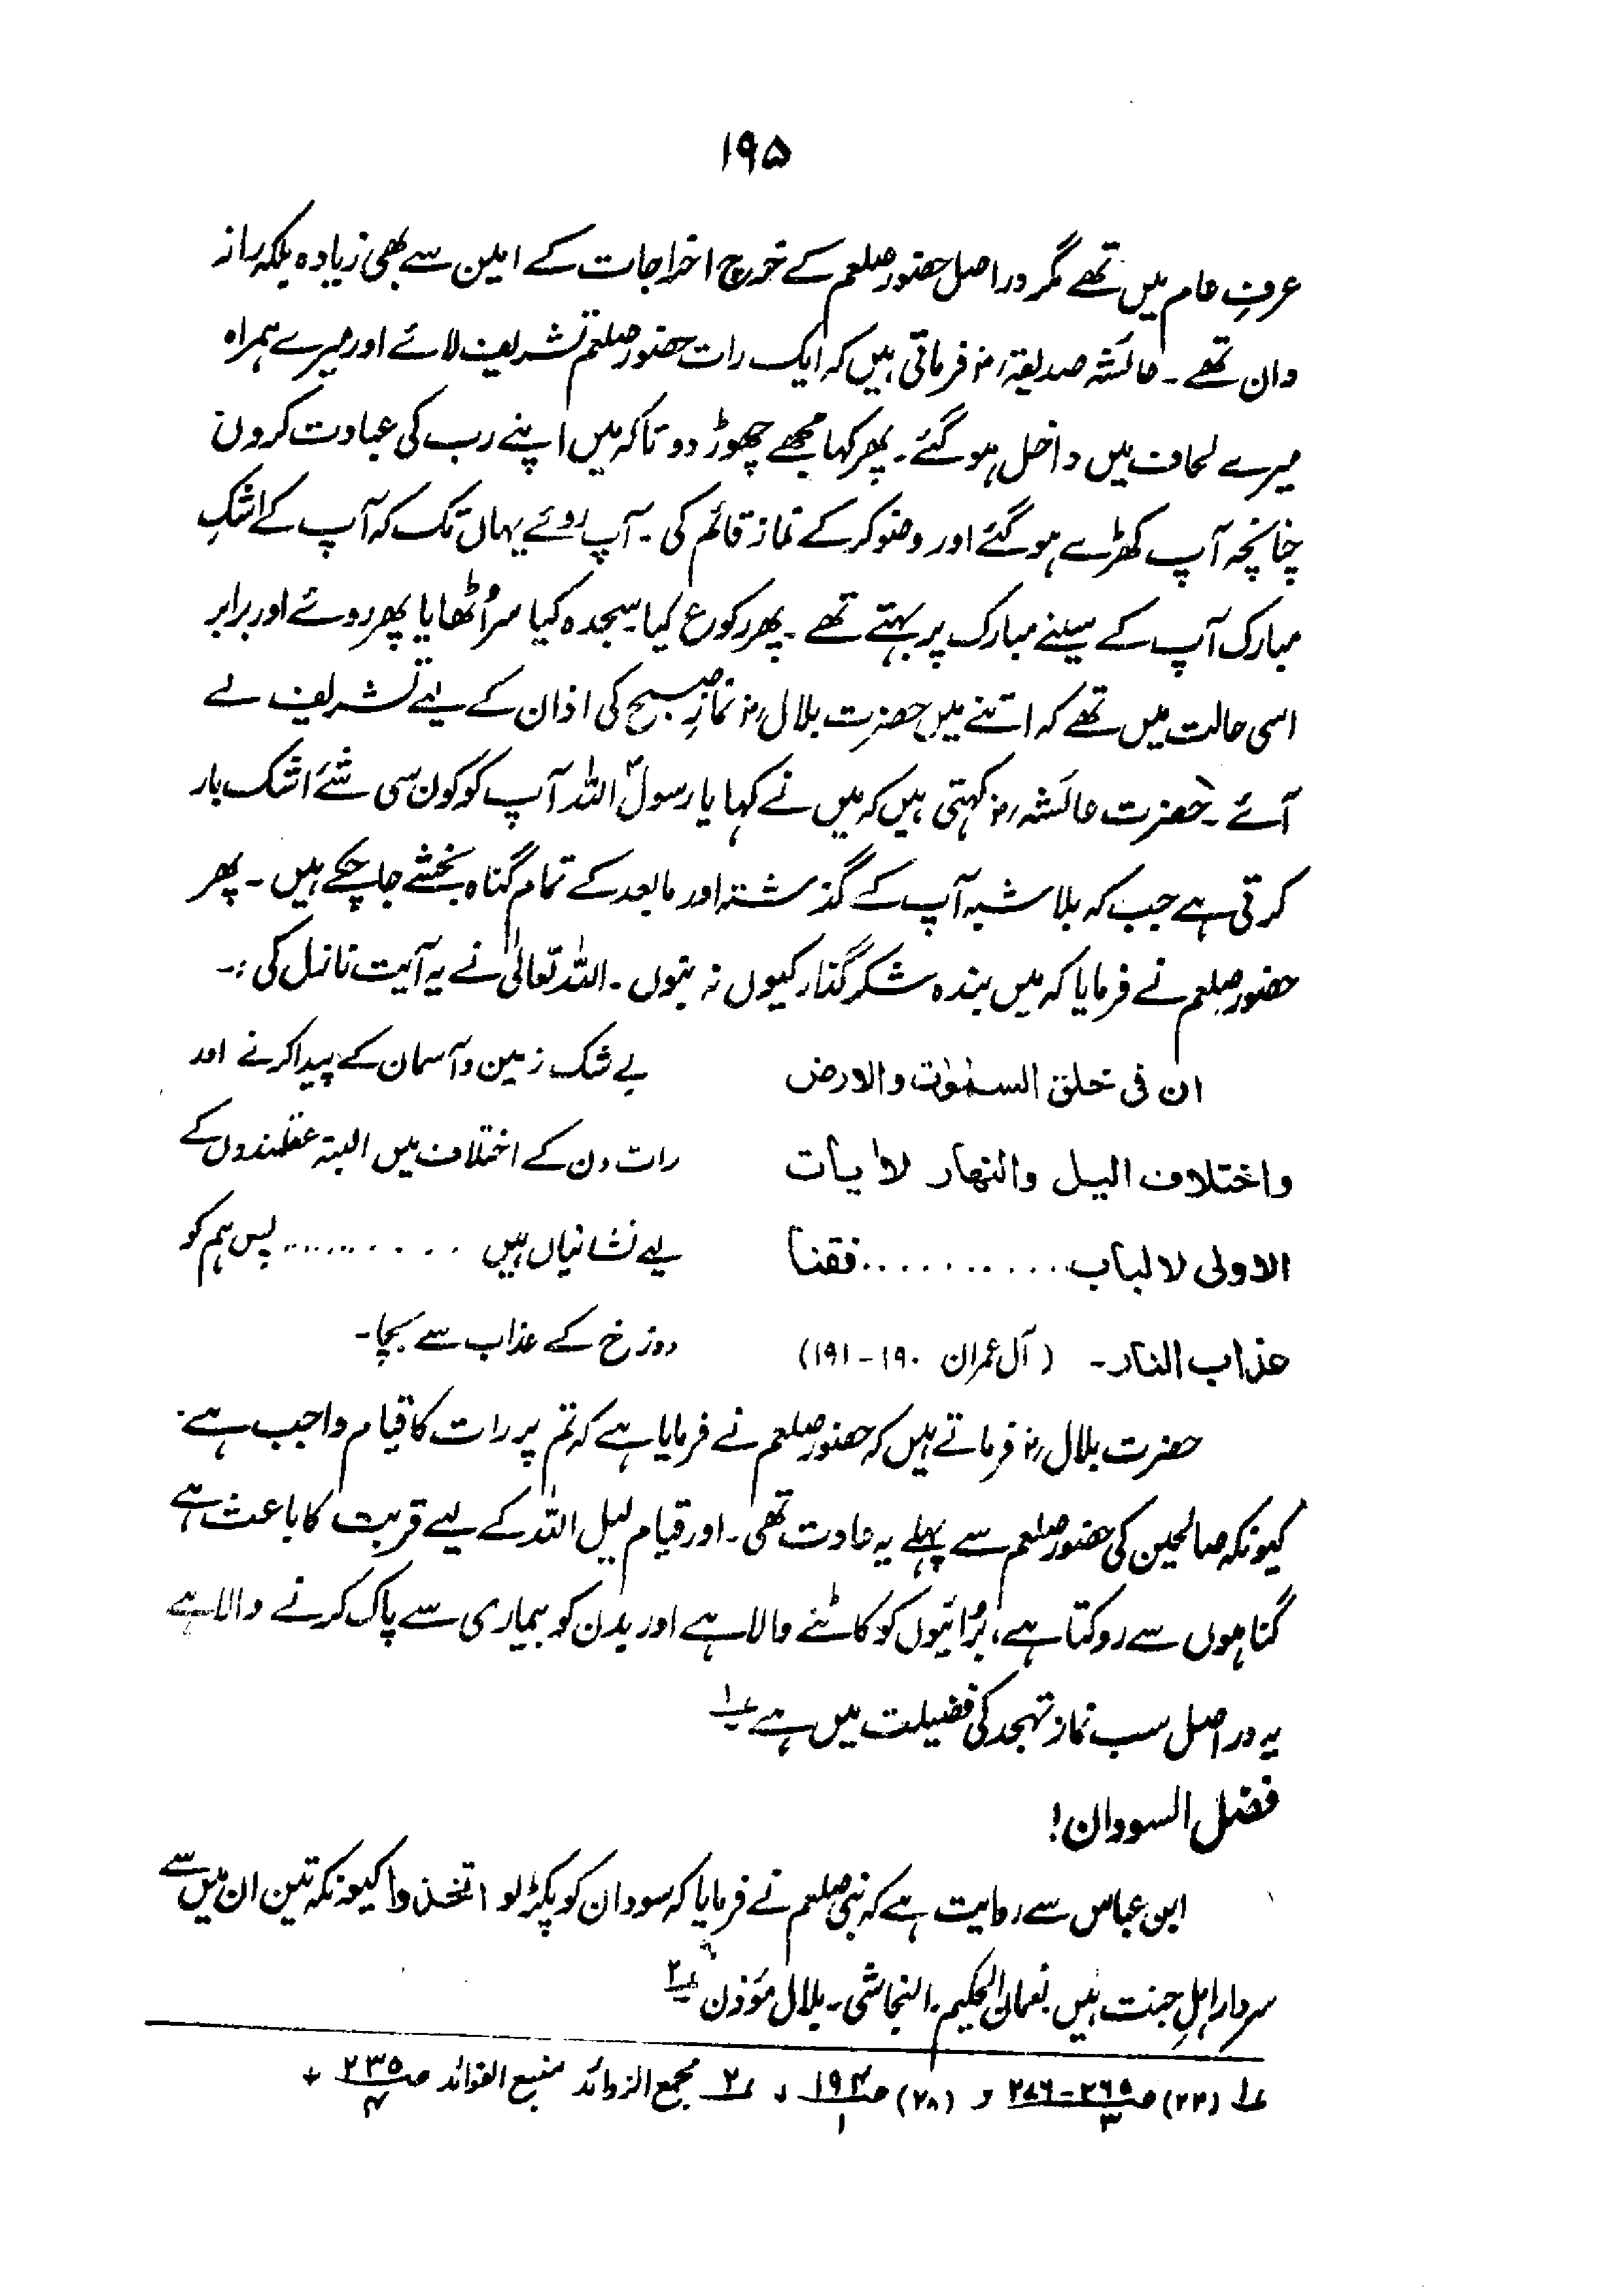 ۱۹۵
عرفِ عام میں تھے مگر دراصل حضور صلعم کے خرچ اخراجات کے امین سے بھی زیادہ بلکہ راز
دان تھے۔ عائشہ صدیقہؓ فرماتی ہیں کہ ایک رات حضور صلعم تشریف لائے اور میرے ہمراہ
میرے لحاف میں داخل ہو گئے۔ پھر کہا مجھے چھوڑ دو تاکہ میں اپنے رب کی عبادت کروں
چنانچہ آپ کھڑے ہو گئے اور وضو کر کے نماز قائم کی۔ آپ روئے یہاں تک کہ آپ کے اشکِ
مبارک آپ کے سینے مبارک پر بہتے تھے۔ پھر رکوع کیا سجدہ کیا سر اُٹھایا پھر روئے اور برابر
اسی حالت میں تھے کہ اتنے میں حضرت بلالؓ نمازِ صبح کی اذان کے لیے تشریف لے
آئے۔ حضرت عائشہؓ کہتی ہیں کہ میں نے کہا یا رسولؐ اللہ آپ کو کون سی شئے اشک بار
کرتی ہے جب کہ بلا شبہ آپ کے گذشتہ اور مابعد کے تمام گناہ بخشے جا چکے ہیں۔ پھر
حضور صلعم نے فرمایا کہ میں بندہ شکر گذار کیوں نہ بنوں۔ اللہ تعالیٰ نے یہ آیت نازل کی :۔
ان فی خلق السمٰوٰت والارض بے شک زمین و آسمان کے پیدا کرنے اور
واختلاف الیل والنھار لاٰیات رات دن کے اختلاف میں البتہ عقلمندوں کے
الاولی لالباب..........فقنا لیے نشانیاں ہیں .......... پس ہم کو
عذاب النار۔ (آل عمران ۱۹۰-۱۹۱) دوزخ کے عذاب سے بچا۔
حضرت بلالؓ فرماتے ہیں کہ حضور صلعم نے فرمایا ہے کہ تم پر رات کا قیام واجب ہے۔
کیونکہ صالحین کی حضور صلعم سے پہلے یہ عادت تھی۔ اور قیام لیل اللہ کے لیے قربت کا باعث ہے
گناہوں سے روکتا ہے، بُرائیوں کو کاٹنے والا ہے اور بدن کو بیماری سے پاک کرنے والا ہے
یہ دراصل سب نماز تہجد کی فضیلت میں ہے ؏۱
فضل السودان!
ابن عباس سے روایت ہے کہ نبی صلعم نے فرمایا کہ سودان کو پکڑ لو اتخذوا کیونکہ تین ان میں سے
سردار اہلِ جنت ہیں نعمان الحکیم۔ النجاشی۔ بلال مؤذن ؏۲
؏۱ (۲۲) ص ۲۶۵-۲۷۶/۳ و (۲۸) ص ۱۹۴/۱ ، ؏۲ مجمع الزوائد منبع الفوائد ص ۲۳۵/۴